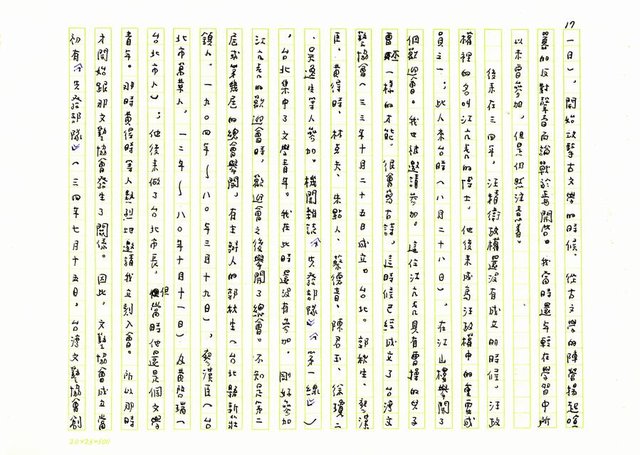 17
一日），開始攻擊古文學的時候，從古文學的陣營揚起喧
囂的反對聲音而論戰於焉開啟。我當時還年輕在學習中所
以未曾參加，但是仍然注意著。
後來在三四年，汪精衛政權還沒有成立的時候，汪政
權裡的名叫江亢虎的博士，他後來成為汪政權中的重要成
員之一；此人來台時（八月二十八日），在江山樓舉開了
個歡迎會。我也被邀請參加。這位江亢虎具有曹操的兒子
曹一樣的才能，很會寫古詩。這時候已經成立了台灣文
藝協會（三三年十月二十五日成立。台北。郭秋生、廖漢
臣、黃得時、林克夫、朱點人、蔡德音、陳君玉、徐瓊二
、吳逸生等人參加。機關雜誌《先發部隊》《第一線》）
，台北集中了文學青年。我在此時還沒有參加，剛好參加
江亢虎的歡迎會時，歡迎會之後舉開了總會。不知是第二
屆或第幾屆的總會舉開。有主辦人的郭秋生（台北縣新莊
鎮人，一九〇四年～八〇年三月十九日），廖漢臣（台
北市萬華人，一二年～八〇年十月十一日）及黃啟瑞（
台北市人）；他後來做了台北市長，但當時他還是個文學
青年。那時黃得時等人熱烈地邀請我立刻入會。所以那時
才開始跟那文藝協會發生了關係。因此，文藝協會成立當
初有《先發部隊》（三四年七月十五日，台灣文藝協會創
20×25=500